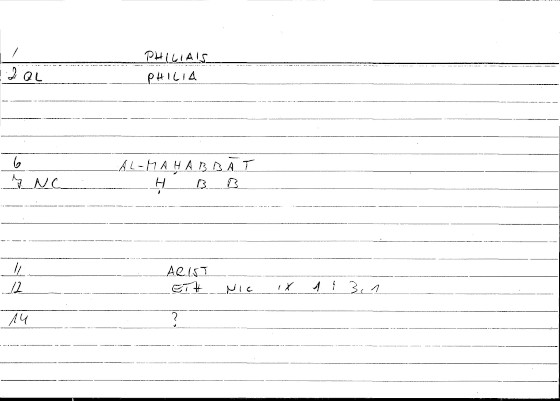 1 PHILIAIS
2 QL PHILIA
6 AL-MAḤABBĀT
7 NC Ḥ B B
11 ARIST
12 ETH NIC IX 1 : 3,1
14 ?